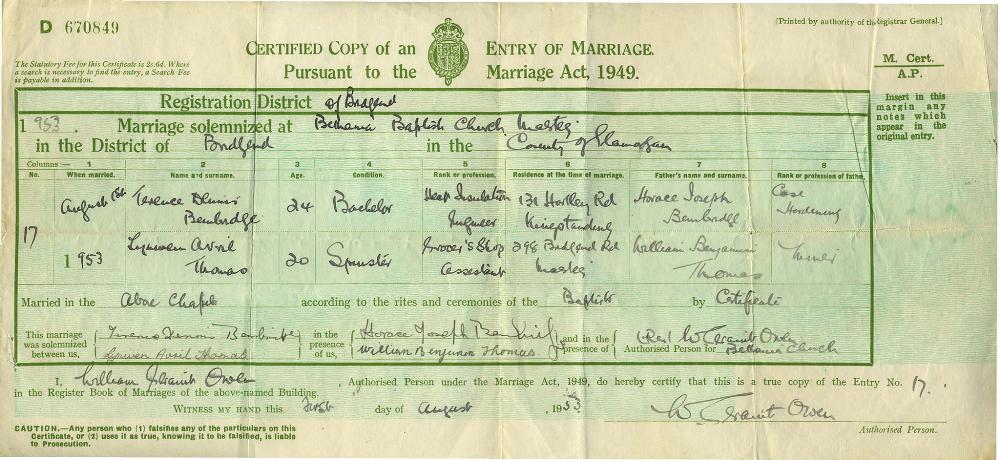 D 670849
[Printed by authority of the Registrar General.]
CERTIFIED COPY of an ENTRY OF MARRIAGE.
Pursuant to the Marriage Act, 1949.
The Statutory Fee for this Certificate is 2s.6d. Where
a search is necessary to find the entry, a Search Fee
is payable in addition.
M. Cert.
A.P.
Insert in this
margin any
notes which
appear in the
original entry.
Registration District of Bridgend
1953. Marriage solemnized at Bethania Baptist Church Maesteg
in the District of Bridgend in the County of Glamorgan
Columns:— 1 2 3 4 5 6 7 8
No. When married. Name and surname. Age. Condition. Rank or profession. Residence at the time of marriage. Father's name and surname. Rank or profession of father.
August 1st Terence Dennis 24 Bachelor Heat Insulation 131 Hartley Rd Horace Joseph Case
Bembridge Engineer Kingstanding Bembridge Hardening
17
1953 Lynwen Avril 20 Spinster Grocer's Shop 298 Bridgend Rd William Benjamin Miner
Thomas assistant Maesteg Thomas
Married in the above Chapel according to the rites and ceremonies of the Baptists by Certificate
This marriage was solemnized between us, Terence Dennis Bembridge in the presence of us, Horace Joseph Bembridge and in the presence of (Rev) W Geraint Owen
Lynwen Avril Thomas William Benjamin Thomas Authorised Person for Bethania Church
I, William Geraint Owen, Authorised Person under the Marriage Act, 1949, do hereby certify that this is a true copy of the Entry No. 17.
in the Register Book of Marriages of the above-named Building.
WITNESS MY HAND this first day of August, 1953
W Geraint Owen
Authorised Person.
CAUTION.—Any person who (1) falsifies any of the particulars on this
Certificate, or (2) uses it as true, knowing it to be falsified, is liable
to Prosecution.